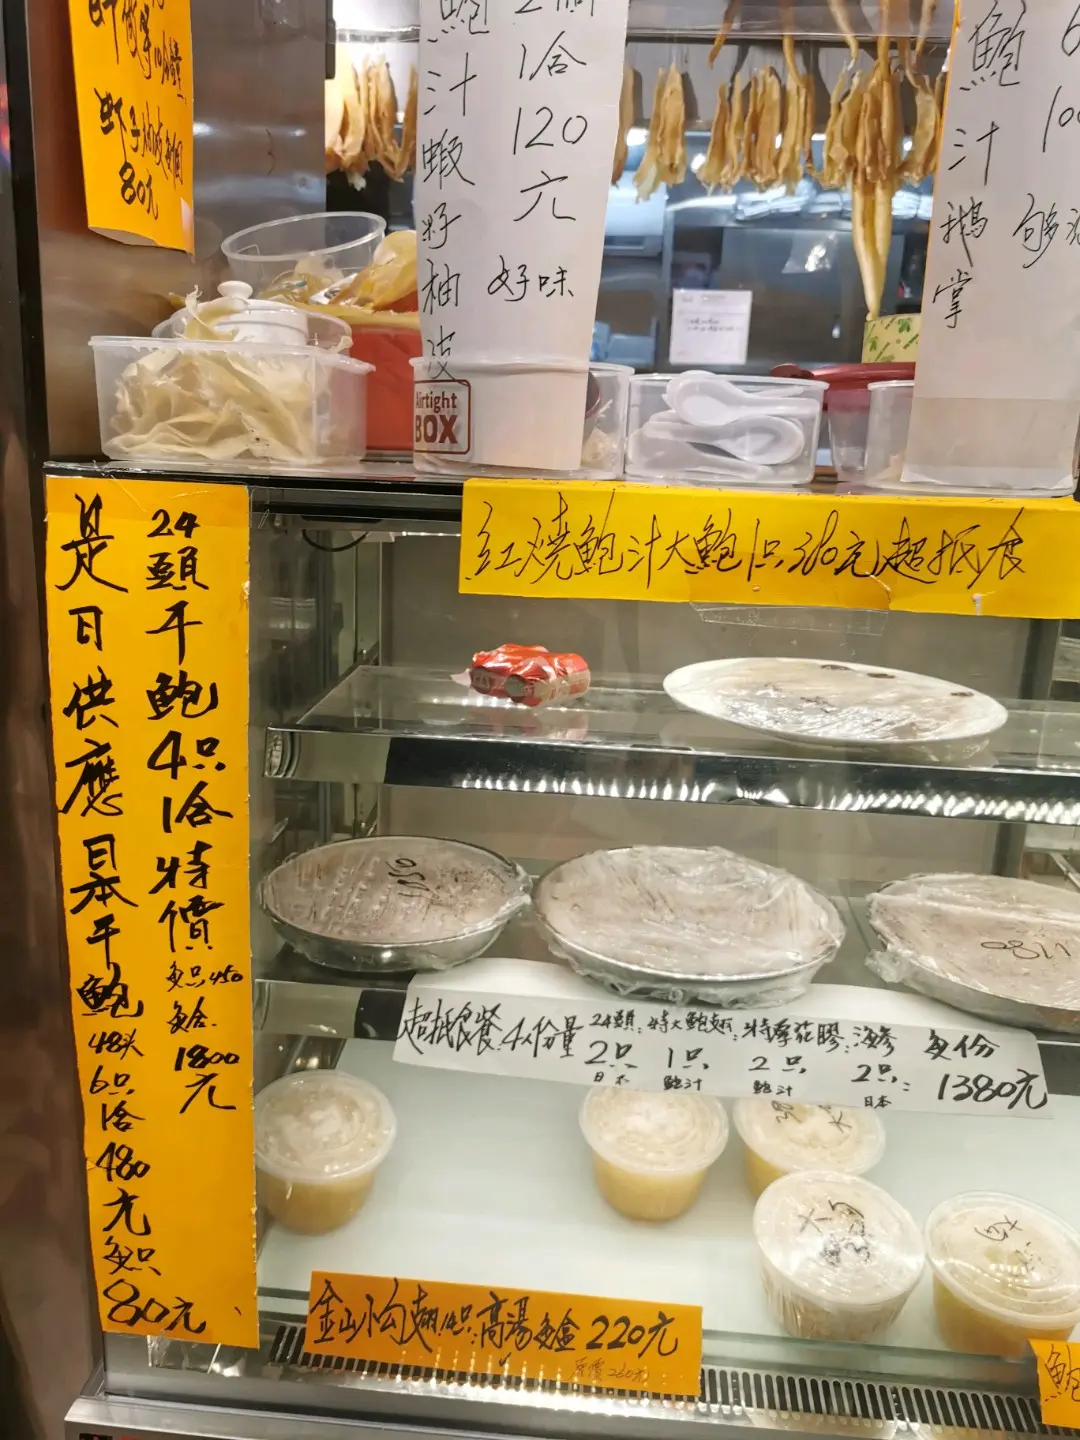 80元
鮑汁蝦籽柚皮
1合
120
元
好味
鮑汁鵝掌
Airtight
BOX
紅燒鮑汁大鮑1只380元超抵食
24頭干鮑4只1合特價
每只450
每合
1800
元
是日供應日本干鮑
48头
6只
1合
480
元
每只
80元
超抵食餐4人份量
24頭
2只
日本
特大鮑翅
1只
鮑汁
特厚花膠
2只
鮑汁
海參
2只
日本
每份
1380元
1180
金山小勾翅
高湯每盒220元
原價260元
鮑